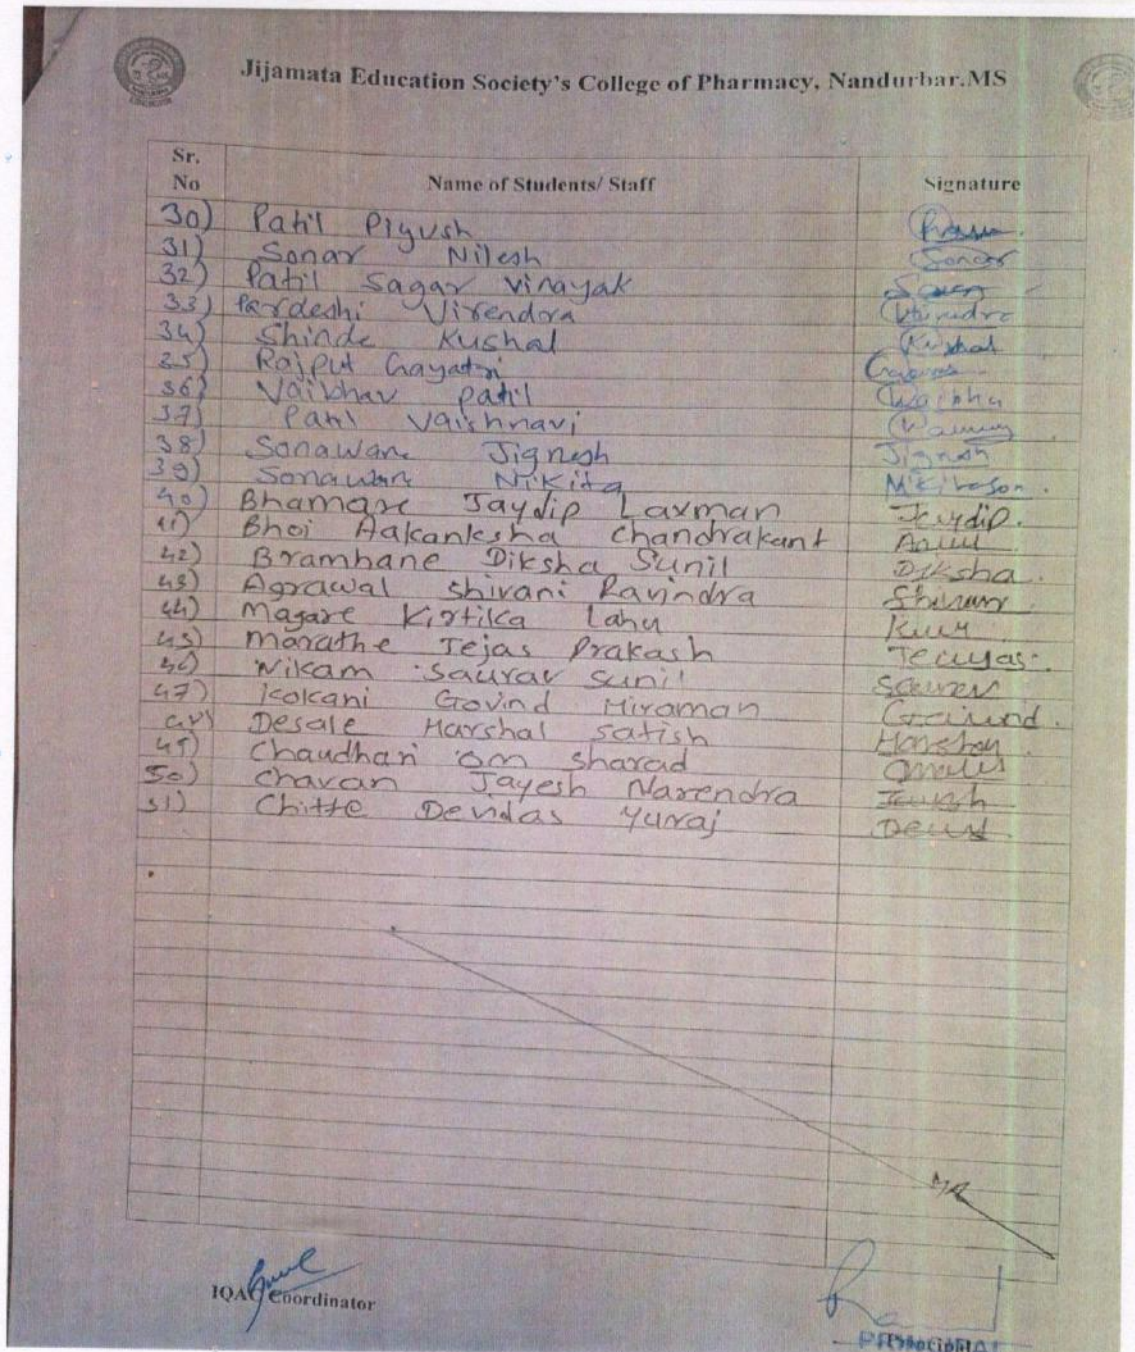 Jijamata Education Society's College of Pharmacy, Nandurbar.MS
Sr. No Name of Students/ Staff Signature
30) Patil Piyush
31) Sonar Nilesh Sonar
32) Patil Sagar Vinayak
33) Pardeshi Virendra Virendra
34) Shinde Kushal Kushal
35) Rajput Gayatri
36) Vaibhav Patil Vaibhav
37) Patil Vaishnavi
38) Sonawane Jignesh Jignesh
39) Sonawane Nikita
40) Bhamare Jaydip Laxman Jaydip.
41) Bhoi Aakanksha Chandrakant
42) Bramhane Diksha Sunil Diksha.
43) Agrawal Shivani Ravindra
44) Magare Kirtika Lahu
45) Marathe Tejas Prakash
46) Nikam Saurav Sunil
47) Kokani Govind Hiraman Govind.
48) Desale Harshal Satish
49) Chaudhari Om Sharad
50) Chavan Jayesh Narendra
51) Chitte Devidas Yuvraj
IQAC Coordinator
PRINCIPAL